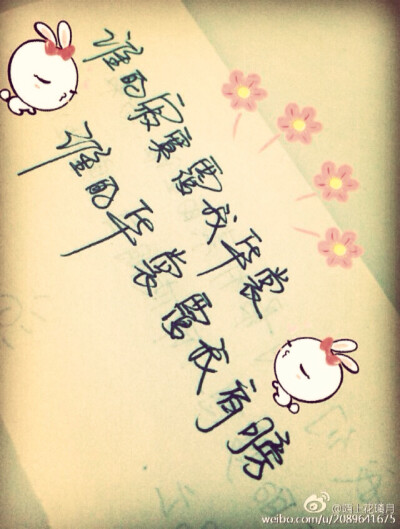 谁的寂寞覆我华裳
谁的华裳覆我肩膀
weibo.com/u/2089641675